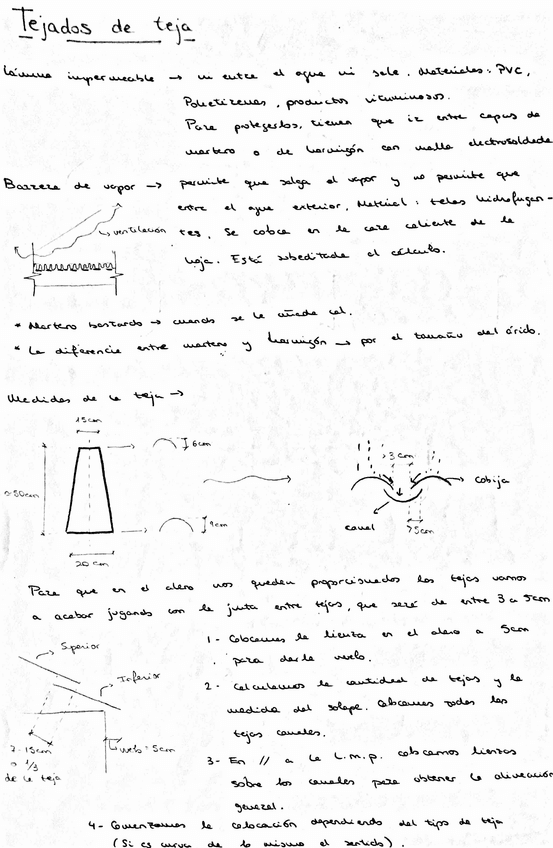 Tejados de teja
Lámina impermeable → ni entra el agua ni sale. Materiales: PVC,
Polietirenas, productos vituminosos.
Para protegerlos, tienen que ir entre capas de
mortero o de hormigón con malla electrosoldada
Barrera de vapor → permite que salga el vapor y no permite que
entre el agua exterior, Material: telas hidrofugan-
tes. Se coloca en la cara caliente de la
hoja. Está subeditada al cálculo.
ventilación
* Mortero bastardo → cuando se le añade cal.
* La diferencia entre mortero y hormigón → por el tamaño del árido.
Medidas de la teja →
15cm
6cm
50cm
9cm
20cm
>3cm
cobija
canal
>5cm
Para que en el alero nos queden proporcionados las tejas vamos
a acabar jugando con la junta entre tejas, que será de entre 3 a 5cm
Superior
Inferior
7-15cm
o 1/3
de la teja
vuelo = 5cm
1- Colocamos la lienza en el alero a 5cm
para darle vuelo.
2- Calculamos la cantidad de tejas y la
medida del solape. Colocamos todas las
tejas canales.
3- En // a la L.m.p. colocamos lienzas
sobre las canales para obtener la alineación
general.
4- Comenzamos la colocación dependiendo del tipo de teja
(Si es curva da lo mismo el sentido).